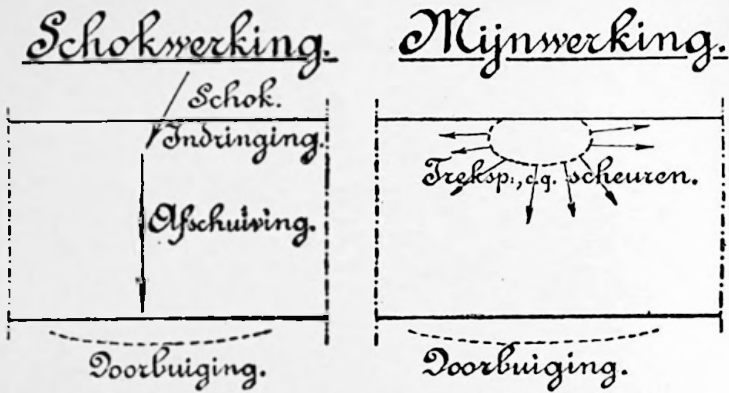 Schokwerking.
Schok.
Indringing.
Afschuiving.
Doorbuiging.
Mijnwerking.
Treksp:, c.q. scheuren.
Doorbuiging.